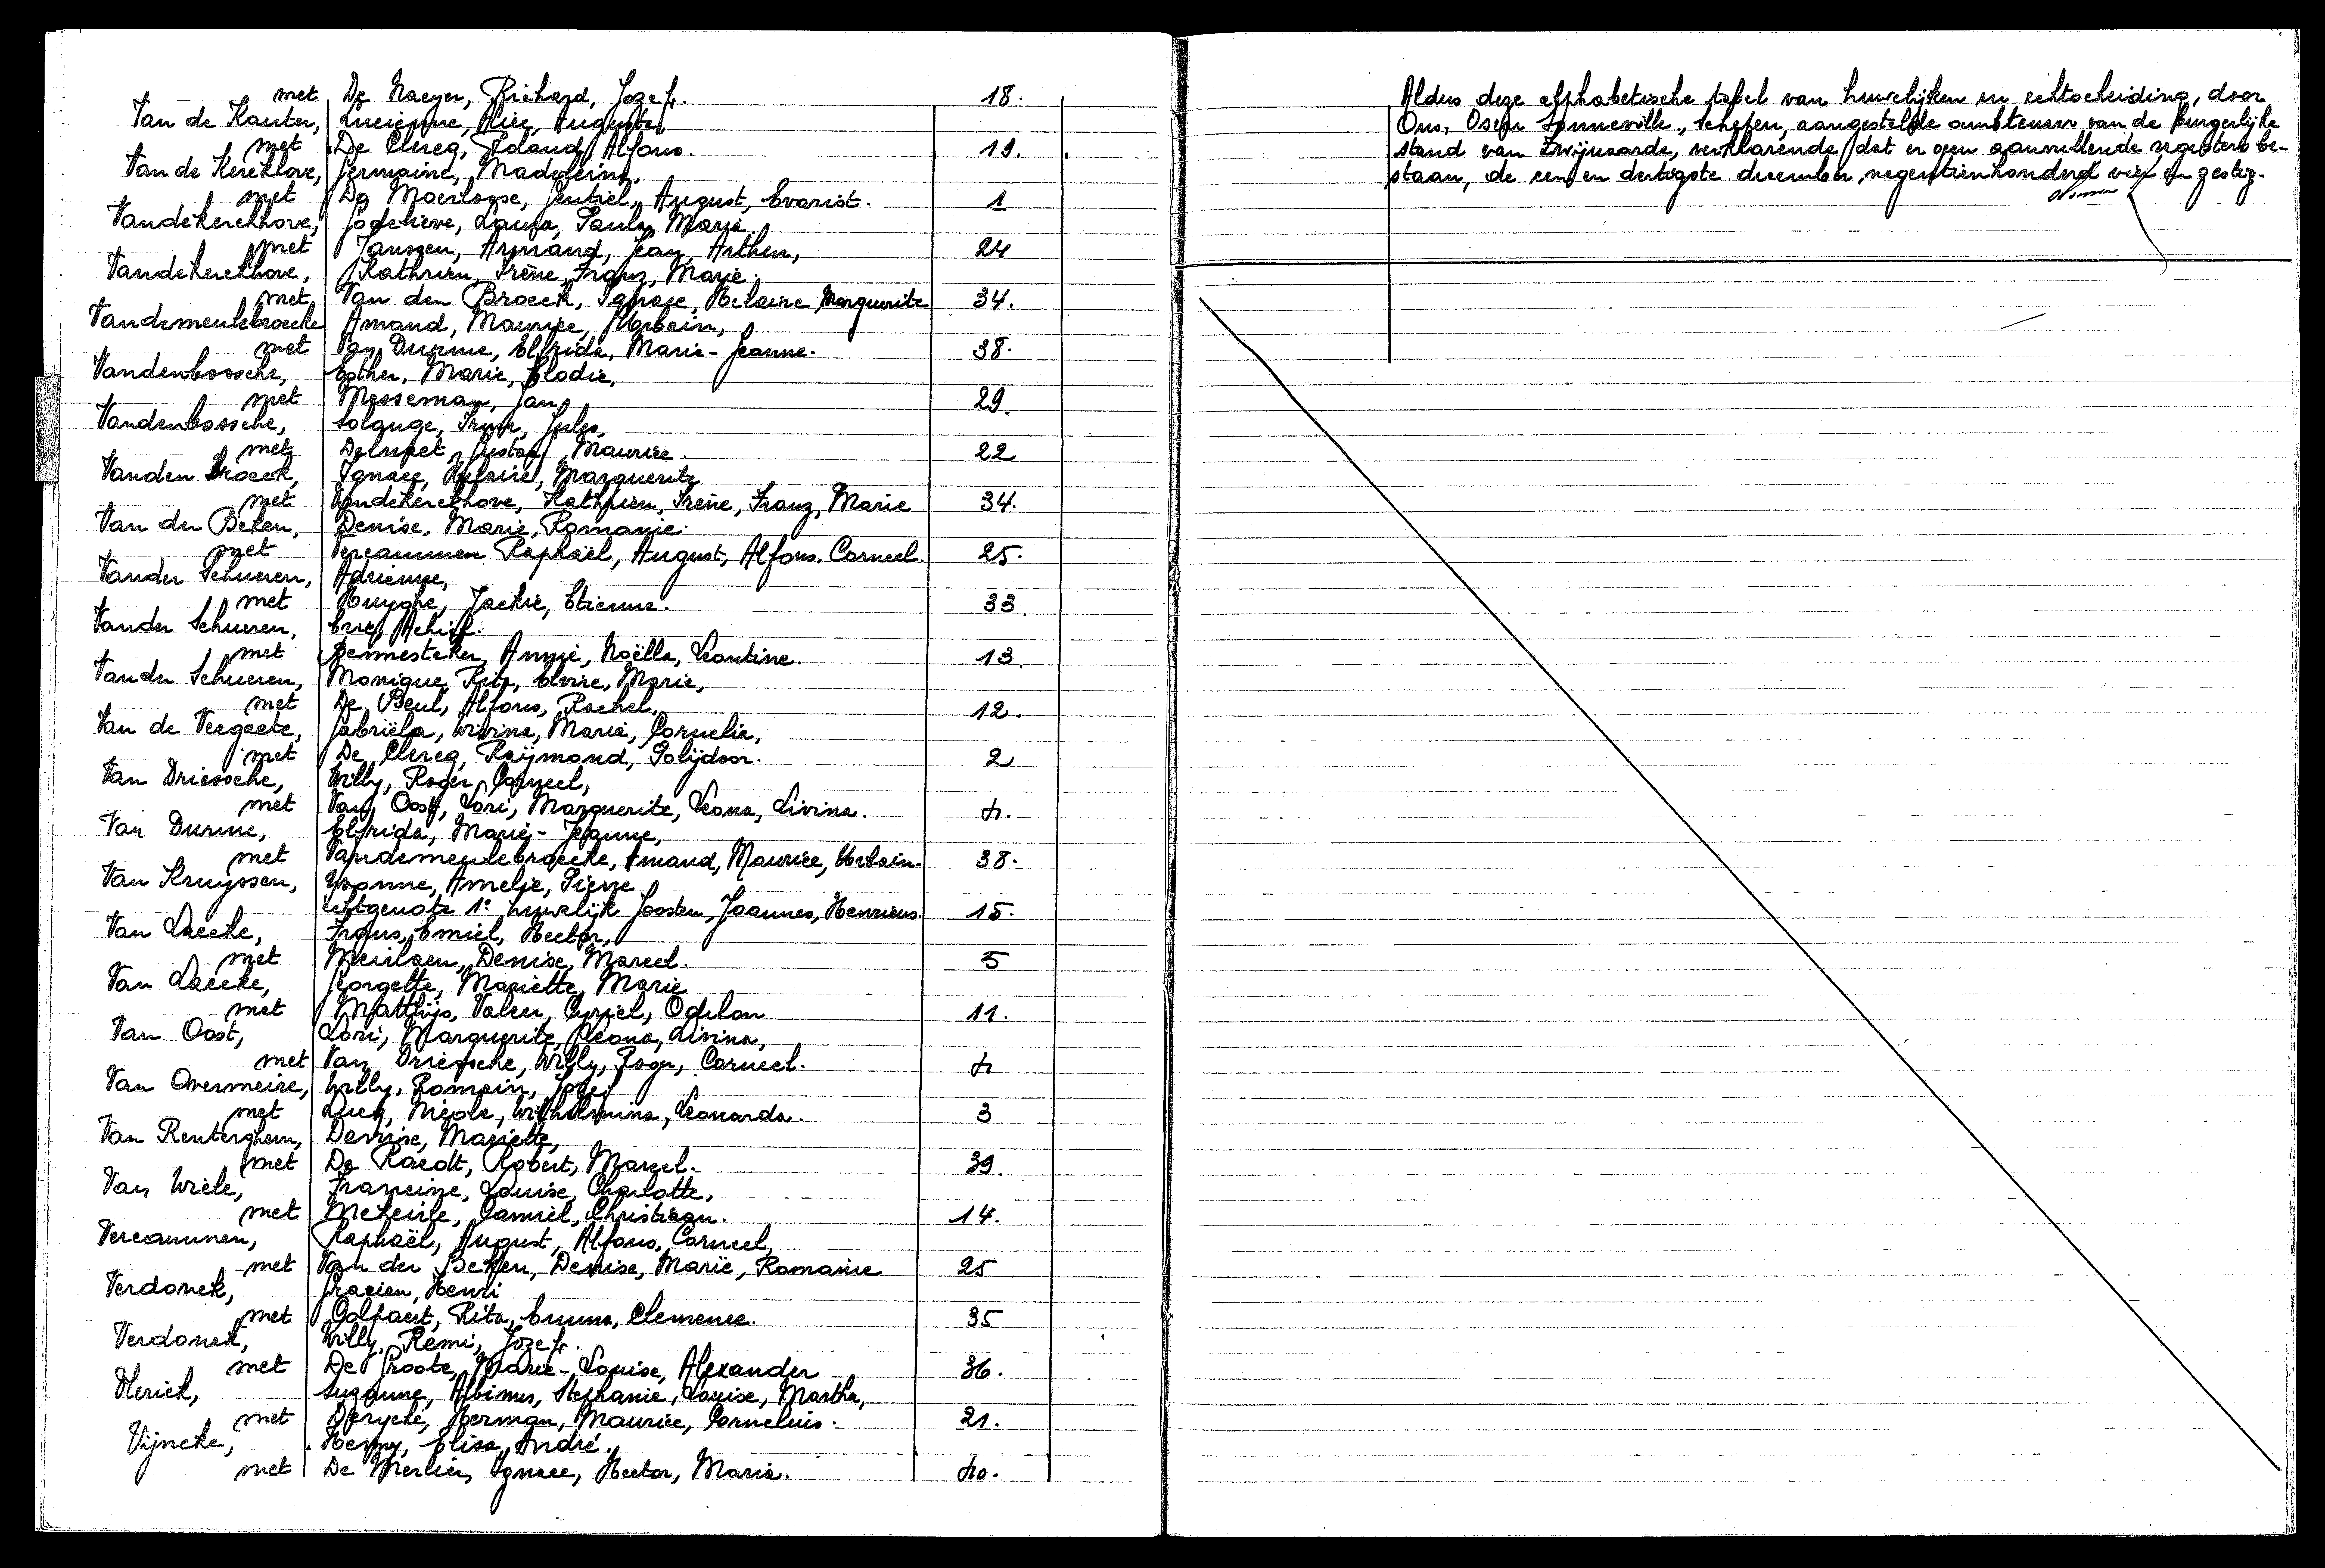 met De Naeyer, Richard, Jozef. 18.
Van de Kauter, Lucienne, Alice, Augusta,
met De Clercq, Roland, Alfons. 19.
Van de Kerckhove, Germaine, Madeleine,
met De Moerloose, Gentiel, August, Evarist. 1
Vandekerckhove, Godelieve, Laura, Paula, Marie.
met Janszen, Armand, Jean, Arthur, 24
Vandekerckhove, Kathrien, Irène, Franz, Marie.
met Van den Broeck, Ignace, Helaire, Marguerite 34.
Vandemeulebroecke Amand, Maurice, Urbain,
met Van Durme, Elfrida, Marie-Jeanne. 38.
Vandenbossche, Esther, Marie, Elodie,
met Messeman, Jan 29.
Vandenbossche, Solange, Irma, Jules,
met Gustaaf, Maurice. 22
Vanden Broeck, Ignace, Helaire, Marguerite
met Vandekerckhove, Kathrien, Irène, Franz, Marie 34.
Van der Beken, Denise, Marie, Romanie.
met Vercammen Raphaël, August, Alfons, Corneel. 25.
Vander Schueren, Adrienne,
met Huyghe, Jackie, Etienne. 33.
Vander Schueren, Eric, Achiel.
met Bennesteker, Annie, Noëlla, Leontine. 13.
Vander Schueren, Monique, Rita, Elvire, Marie,
met De Beul, Alfons, Rachel, 12.
Van de Veegaete, Gabriëla, Wivina, Maria, Cornelia,
met De Clercq, Raÿmond, Polijdoor. 2
Van Driessche, Willy, Roger, Corneel,
met Van Oost, Lori, Marguerite, Leona, Livina. 4.
Van Durme, Elfrida, Marie-Jeanne,
met Vandemeulebroecke, Amand, Maurice, Urbain. 38.
Van Kruyssen, Yvonne, Amelie, Pierre
echtgenote 1e huwelijk Joosten, Joannes, Henricus. 15.
Van Laecke, Frans, Emiel, Hector,
met Meirlaen, Denise, Marcel. 5
Van Laecke, Georgette, Mariette, Marie
met Matthijs, Valeer, Cyriel, Odilon 11.
Van Oost, Lori, Marguerite, Leona, Livina,
met Van Driessche, Willy, Roger, Corneel. 4
Van Overmeire, Willy, Romain, Jozef
met Lucq, Nicole, Wilhelmina, Leonarda. 3
Van Renterghem, Denise, Mariette,
met De Raedt, Robert, Marcel. 39.
Van Wiele, Francine, Louise, Charlotte,
met Mekeirle, Camiel, Christiaan. 14.
Vercammen, Raphaël, August, Alfons, Corneel,
met Van der Beken, Denise, Marie, Romanie 25
Verdonck, Gracien, Henri
met Colpaert, Rita, Emma, Clemence. 35
Verdonck, Willy, Remi, Jozef.
met De Groote, Marie-Louise, Alexander 36.
Vlerick, Suzanne, Albinus, Stephanie, Louise, Martha,
met Derycke, Herman, Maurice, Cornelius. 21.
Vijncke, Henny, Elisa, André.
met De Merlier, Ignace, Hector, Maria. 40.
Aldus deze alphabetische tafel van huwelijken en echtscheiding, door
Ons, Oscar Sonneville, Schepen, aangestelde ambtenaar van de burgerlijke
stand van Zwijnaarde, verklarende dat er geen aanvullende registers be-
staan, de een en dertigste december, negentienhonderd vier en zestig.